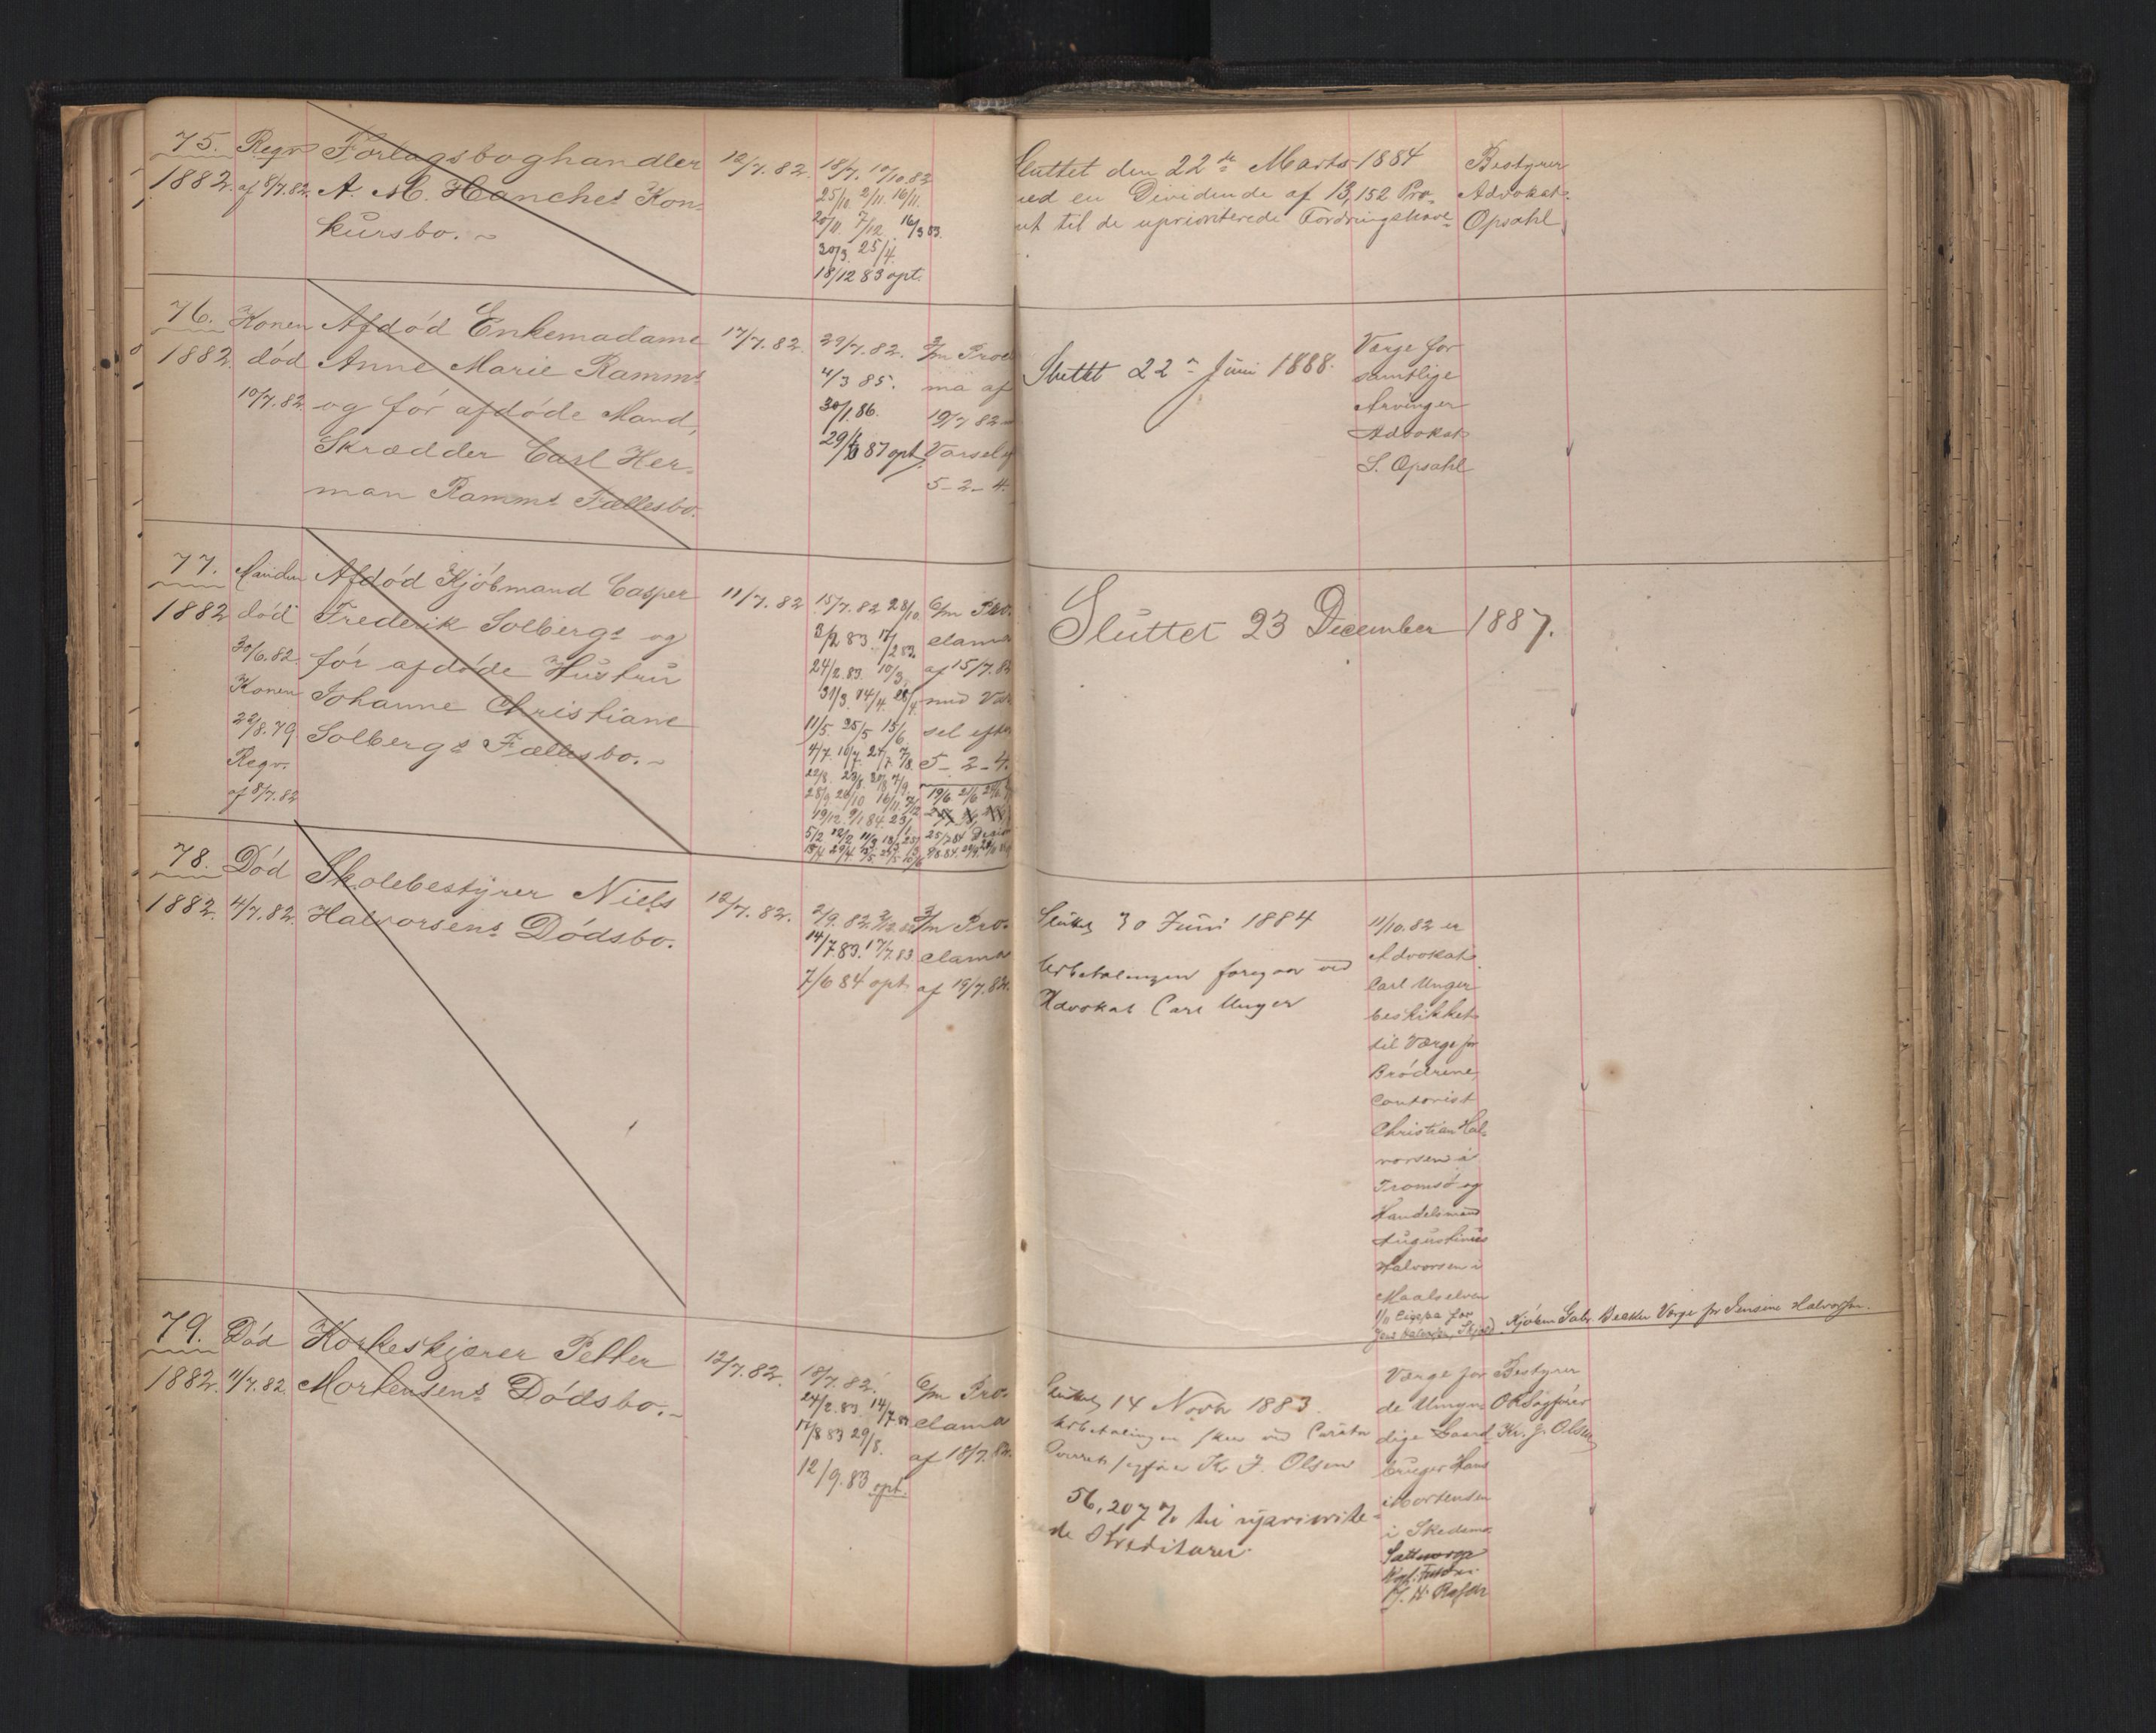 75.
1882.
Regv
af 8/7.82.
Forlagsboghandler
A. M. Hanches Kon-
kursbo.
12/7.82.
18/7. 10/10.82
25/10. 2/11. 16/11.
20/11. 7/12. 16/3 83.
30/3. 25/4.
18/12 83 opt.
Sluttet den 22de Marts 1884
med en Dividende af 13,152 Pro-
cent til de uprioriterede Fordringshave-
Bestyrer
Advokat
Opsahl
76.
1882.
Konen
død
10/7.82.
Afdød Enkemadame
Anne Marie Ramms
og før afdøde Mand,
Skrædder Carl Her-
man Ramms Fællesbo.
17/7.82.
29/7.82.
4/3 85.
30/1.86.
87 opt.
af
19/7 82
Varsel
5-2-4.
Sluttet 22 Juni 1888.
Værge for
samtlige
Arvinger
Advokat
S. Opsahl
77.
1882
Manden
død
30/6.82.
Konen
22/8.79
Regv.
af 8/7.82
Afdød Kjøbmand Casper
Frederik Solbergs og
før afdøde Hustru
Johanne Christiane
Solbergs Fællesbo.
11/7.82
15/7.82 28/10.
24/2.83. 10/3.
31/3. 14/4.
11/5. 25/5 15/6.
4/7. 16/7. 27/7. 7/8.
6/m Pro-
clama
af 15/7.82
med Var-
sel efter
5-2-4.
Sluttet 23 December 1887.
78.
1882.
Død
4/7.82.
Skolebestyrer Niels
Halvorsens Dødsbo.
12/7.82.
2/9.82.
14/7.83. 17/7.83.
7/6 84 opt.
Pro-
clama
af 19/7.82.
Sluttet 30 Juni 1884
Udbetalingen foregaar ved
Advokat Carl Unger
11/10.82 er
Advokat
Carl Unger
beskikket
til Værge for
Brødrene,
Contorist
Christian Hal-
vorsen i
Tromsø og
Handelsmand
Augustinus
Halvorsen i
Maalselven
Værge for Jensine Halvorsen.
79.
1882.
Død
11/7.82.
Korkeskjærer Petter
Mortensens Dødsbo.
12/7.82.
18/7.82.
24/2.83. 14/7.83
17/8 83 29/8.
12/9.83 opt.
6/m Pro-
clama
af 18/7.82.
Sluttet 14 Novbr 1883.
Udbetalingen sker ved Curator
Overretssagfører Kr. J. Olsen
56,207 % til uprioritere-
de Kreditorer
Værge for
de Umyn-
dige Gaard-
bruger Hans
Mortensen
i Skedsmo
Bestyrer
ORSagfører
Kr. J. Olsen